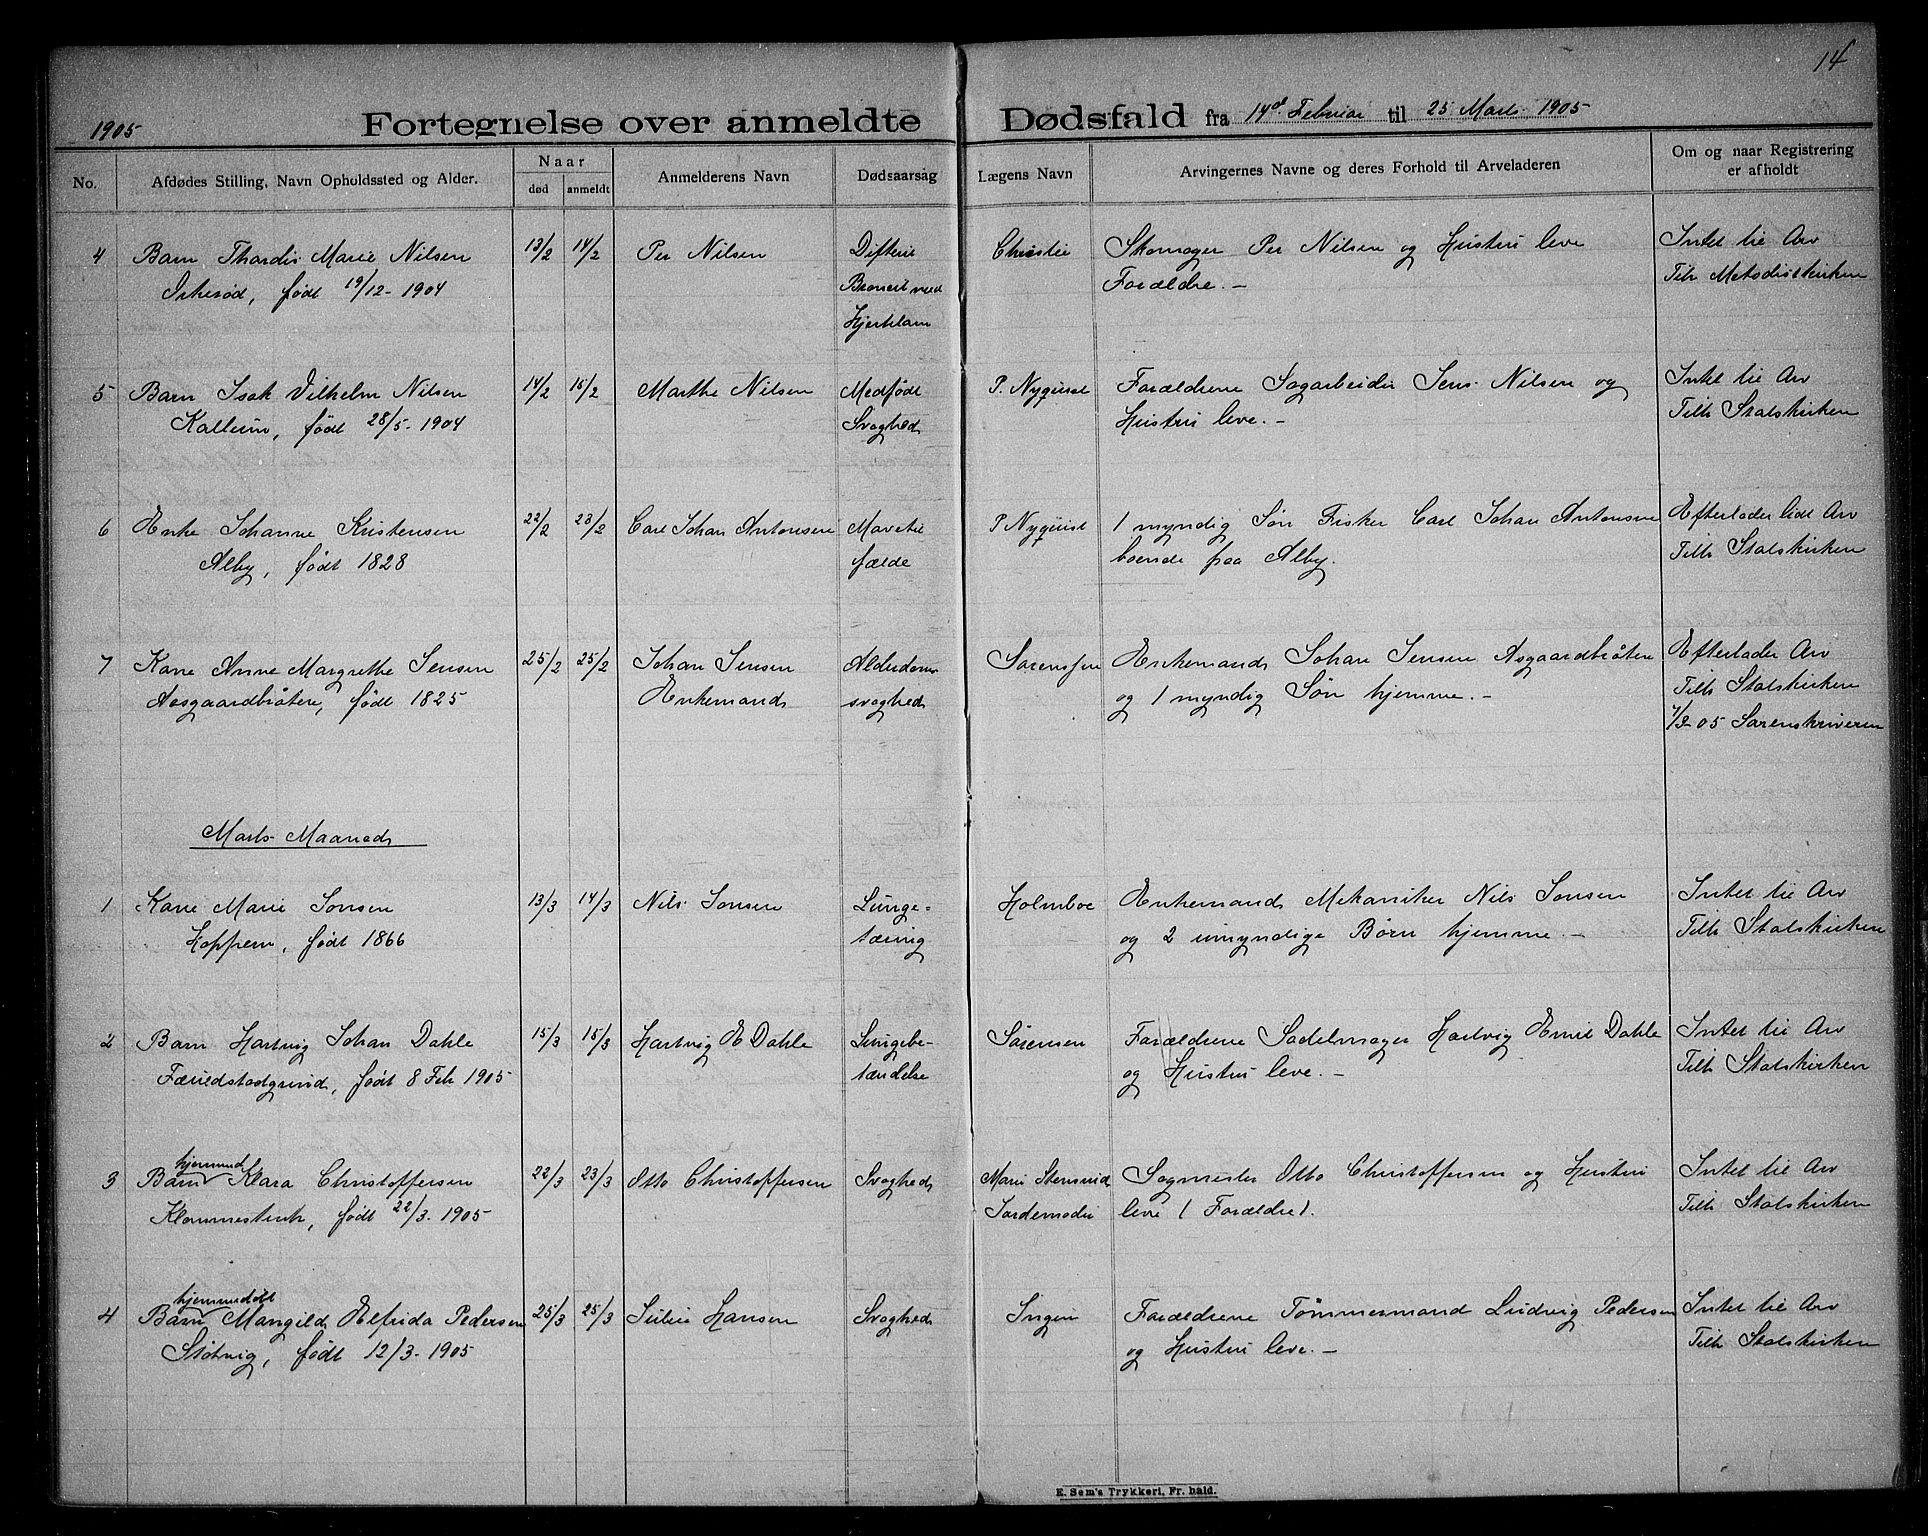 14
1905
Fortegnelse over anmeldte Dødsfald fra 14de Februar til 25 Marts 1905
No.
Afdødes Stilling, Navn Opholdssted og Alder.
Naar
død
anmeldt
Anmelderens Navn
Dødsaarsag
Lægens Navn
Arvingernes Navne og deres Forhold til Arveladeren
Om og naar Registrering
er afholdt
4 Barn Thordis Marie Nilsen 13/2 14/2 Per Nilsen Difteri Christie Skomager Per Nilsen og Hustru leve Intet til Arv
født 19/12-1904 Forældre. - Tilh Metodistkirken
Hjertelam
5 Barn Isak Vilhelm Nilsen 14/2 15/2 Marthe Nilsen Medfødt P. Nyquist Forældrene Sagarbeider Jens Nilsen og Intet til Arv
Kallum, født 28/5-1904 Svaghed Hustru leve. - Tilh Statskirken
6 Enke Johanne Kristensen 22/2 23/2 Carl Johan Antonsen Mavetil P Nyquist 1 myndig Søn Fisker Carl Johan Antonsen Efterlader lidt Arv
Alby, født 1828 fælde boende paa Alby. Tilh Statskirken
7 Kone Anne Margrethe Jensen 25/2 25/2 Johan Jensen Alderdoms Sørenssen Enkemand Johan Jensen Aasgaardbråten Efterlader Arv
Aasgaardbråten, født 1825 Enkemand svaghed og 1 myndig Søn hjemme. - Tilh Statskirken
7/3-05 Sorenskriveren
Marts Maaned
1 Kone Marie Jonsen 13/3 14/3 Nils Jonsen Lunge- Holmboe Enkemand Mekaniker Nils Jonsen Intet til Arv
Hoppern, født 1866 tæring og 2 umyndige Børn hjemme. - Tilh Statskirken
2 Barn Hartvig Johan Dahle 15/3 15/3 Hartvig E Dahle Lungebe- Sørensen Forældrene Sadelmager Hartvig Emil Dahle Intet til Arv
født 8 Feb 1905 tændelse og Hustru leve. - Tilh Statskirken
hjemmed
3 Barn Klara Christoffersen 22/3 23/3 Otto Christoffersen Svaghed Marie Stensrud Sagmester Otto Christoffersen og Hustru Intet til Arv
født 22/3-1905 Jordemoder leve (Forældre). Tilh Statskirken
hjemmedøbt
4 Barn Mangild Elfrida Pedersen 25/3 25/3 Julie Hansen Svaghed Ingen Forældrene Tømmermand Ludvig Pedersen Intet til Arv
Støtvig, født 12/3-1905 og Hustru leve. - Tilh Statskirken
E. Sem's Trykkeri, Fr.hald.